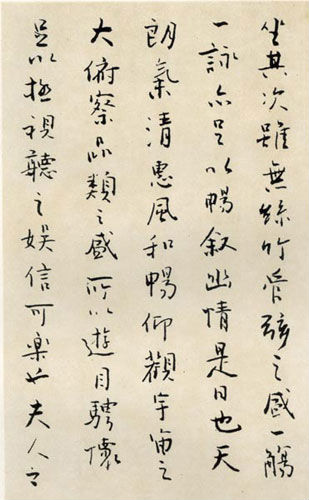 坐其次雖無絲竹管弦之盛一觴
一詠亦足以暢敘幽情是日也天
朗氣清惠風和暢仰觀宇宙之
大俯察品類之盛所以遊目騁懷
足以極視聽之娛信可樂也夫人之